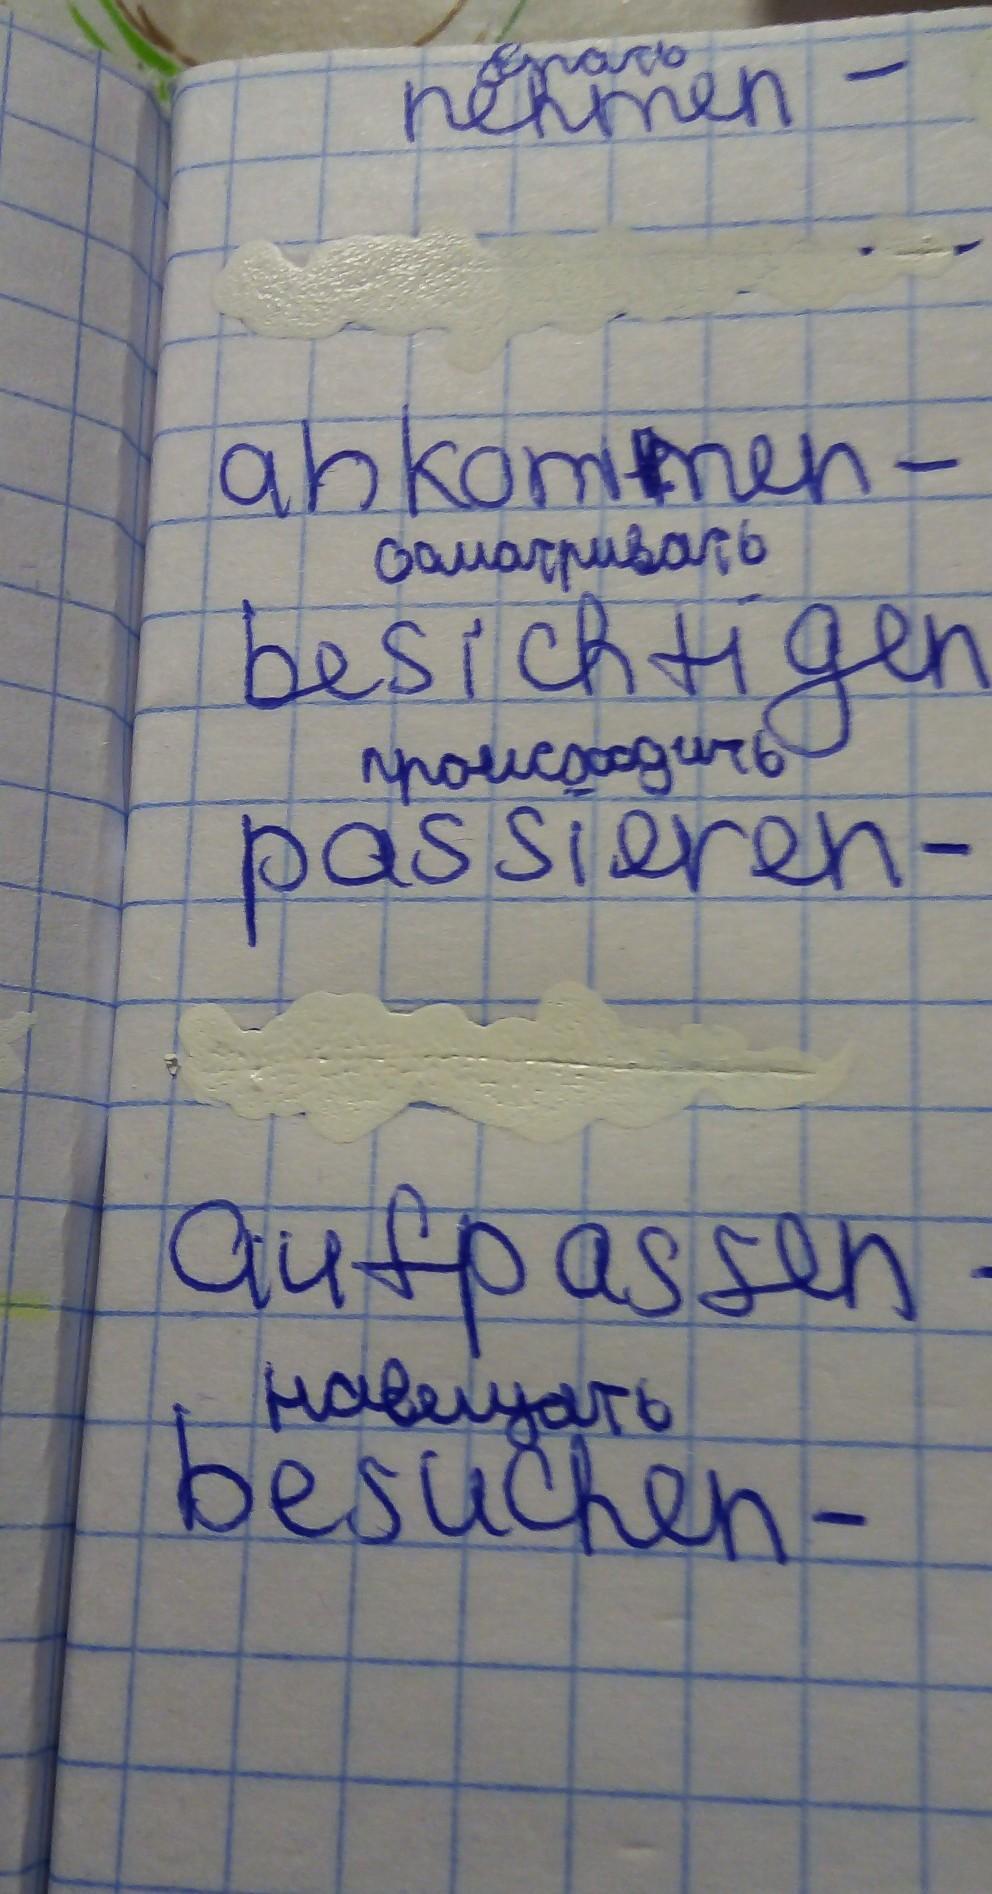 брать
nehmen -
ankommen -
осматривать
besichtigen
происходить
passieren -
aufpassen -
навещать
besuchen -